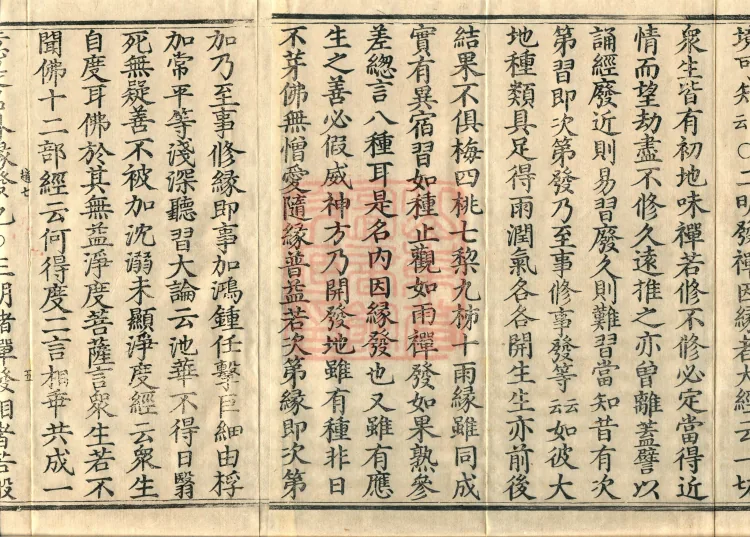 境可知云〇二明發禪因緣者大經云一切
衆生皆有初地味禪若修不修必定當得近
情而望劫盡不修久遠推之亦曽離蓋譬以
誦經廢近則易習廢久則難習當知昔有次
第習即次第發乃至事修事發等云云如彼大
地種類具足得雨潤氣各各開生生亦前後
結果不俱梅四桃七黎九柹十雨緣雖同成
實有異宿習如種止觀如雨禪發如果熟參
差緫言八種耳是名内因緣發也又雖有應
生之善必假威神方乃開發地雖有種非日
不芽佛無憎愛隨緣普益若次第緣即次第
加乃至事修緣即事加鴻鍾任擊巨細由桴
加常平等淺深聽習大論云池華不得日翳
死無疑善不被加沈溺未顯淨度經云衆生
自度耳佛於其無益淨度菩薩言衆生若不
聞佛十二部經云何得度二言相乖共成一
五